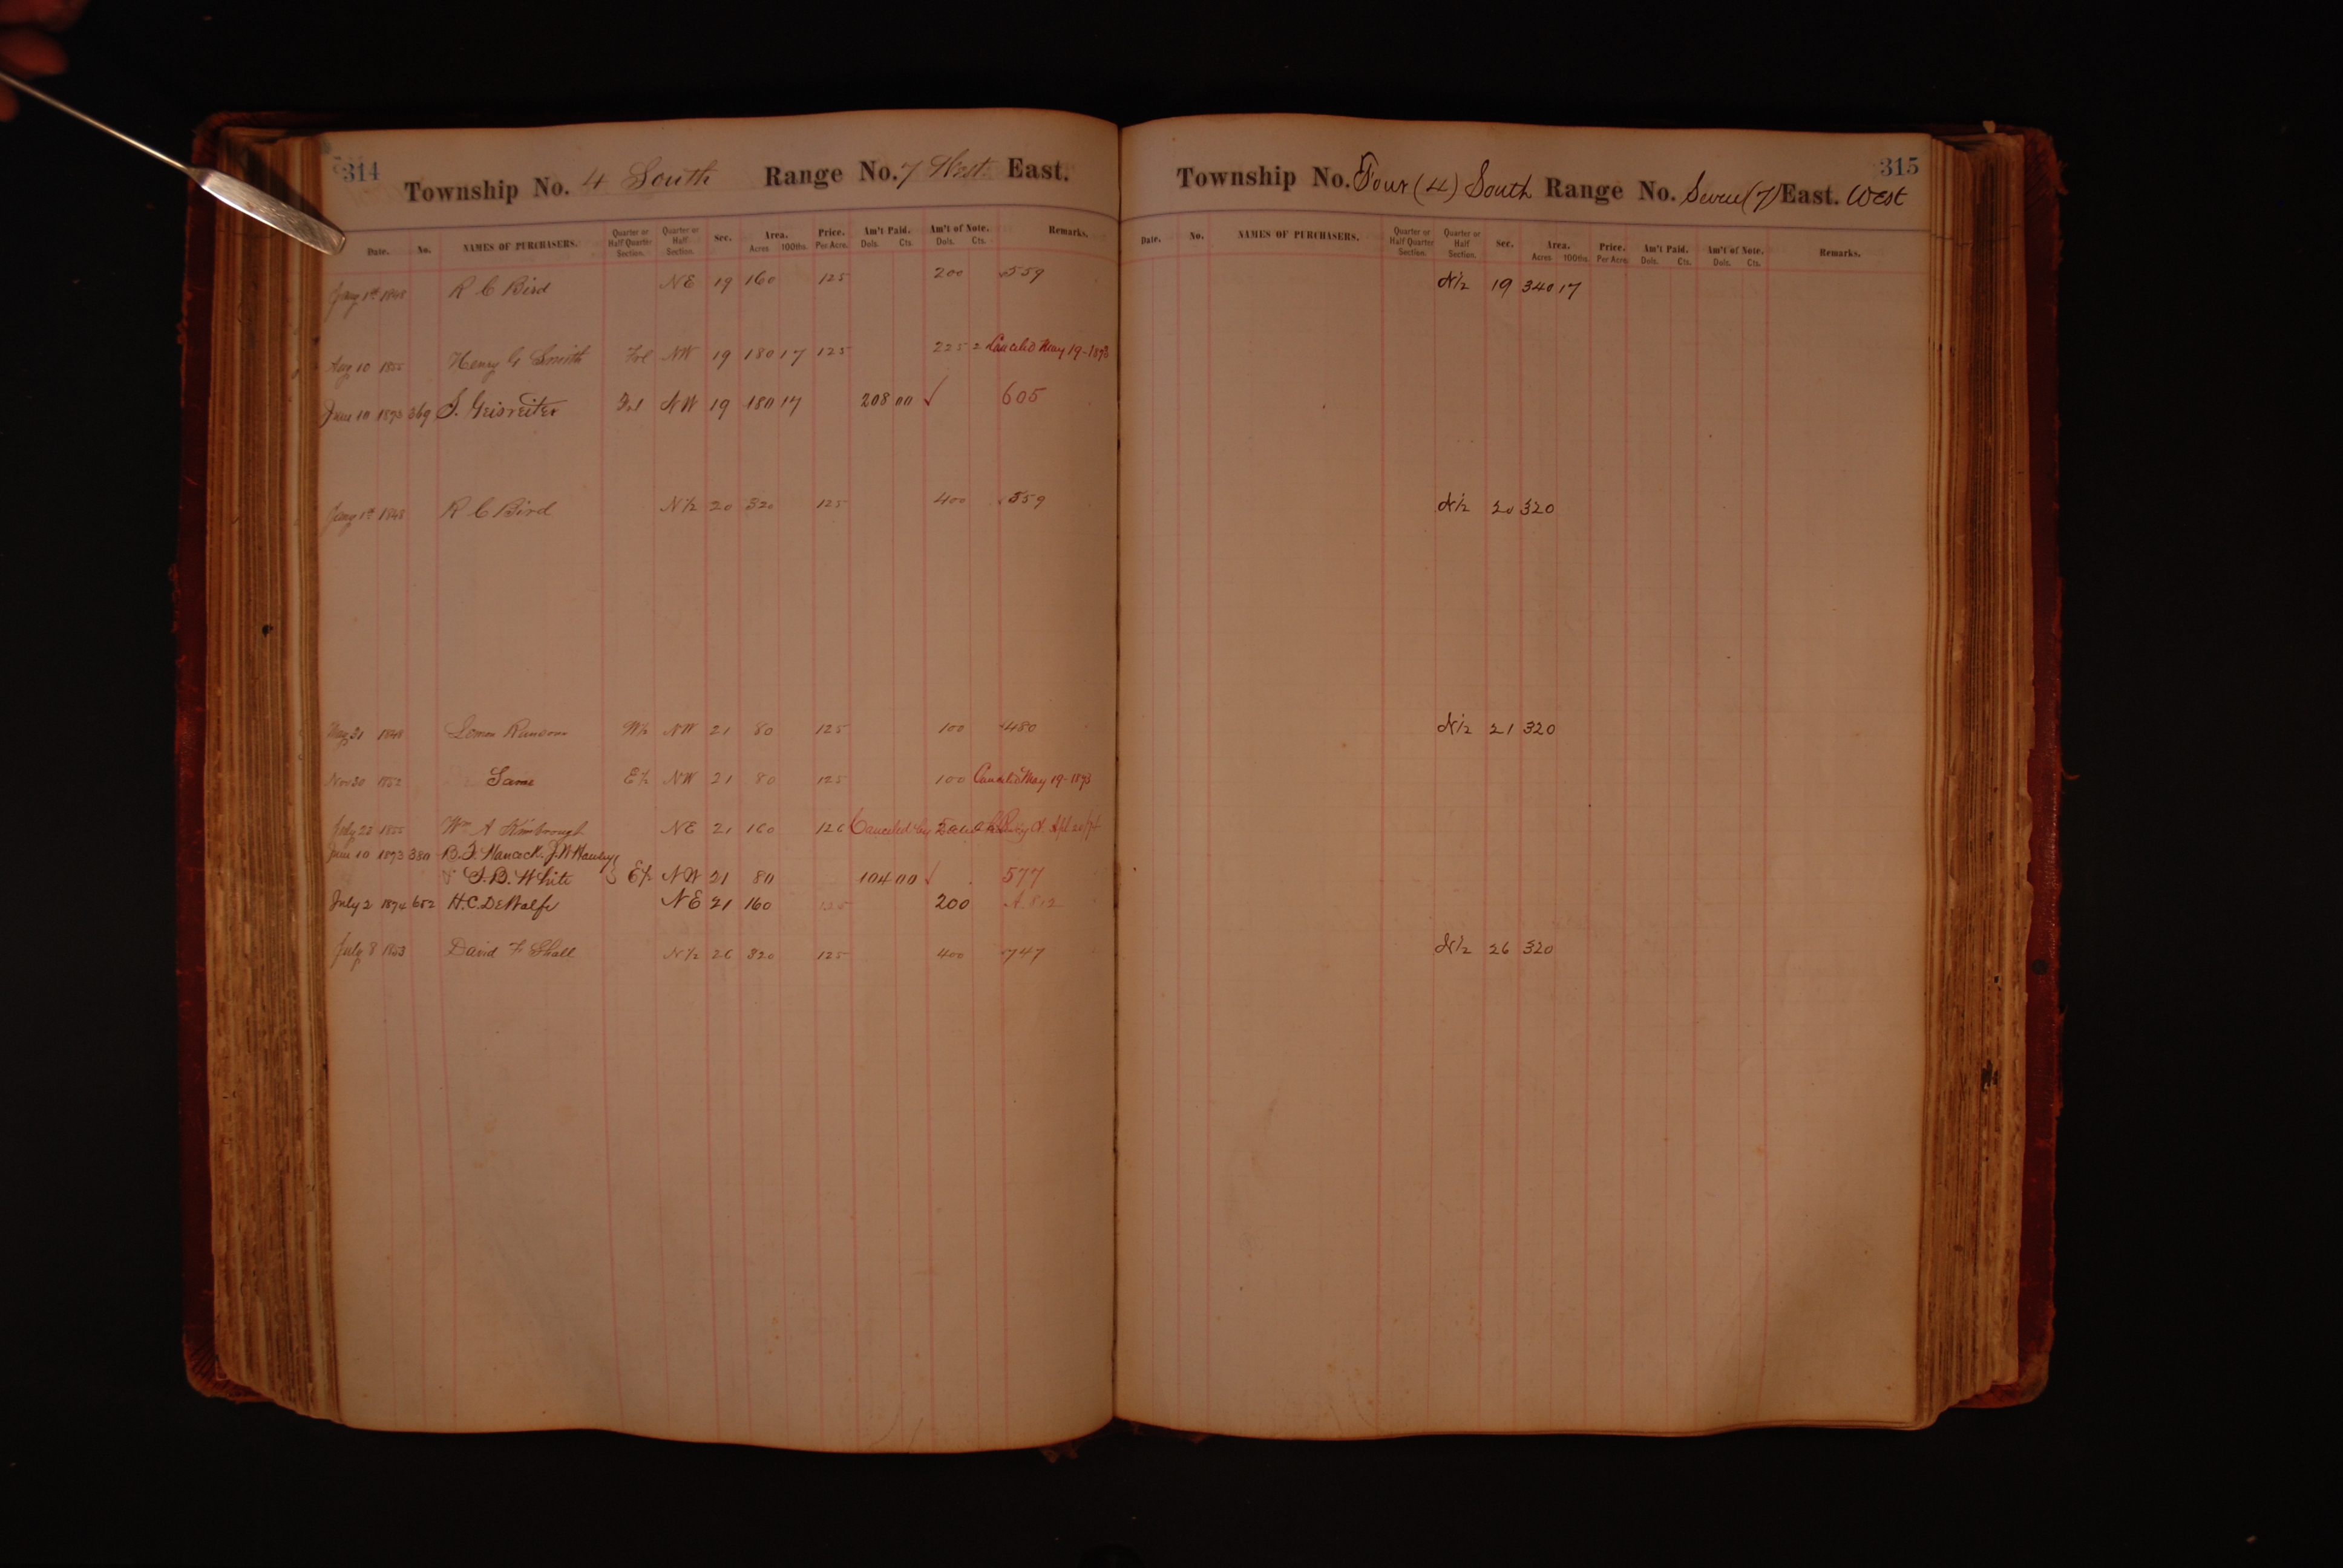 314
Township No. 4 South Range No. 7 West East.
Date. No. NAMES OF PURCHASERS. Quarter or Half Quarter Section. Quarter or Half Section. Sec. Area. Acres 100ths. Price. Per Acre. Am't Paid. Dols. Cts. Am't of Note. Dols. Cts. Remarks.
Jany 1st 1848 R C Bird NE 19 160 125 200 559
Aug 10 1855 Henry G Smith Frl NW 19 180 17 125 225 2 Canceled May 19-1873
June 10 1873 369 S. Geisreiter Frl NW 19 180 17 208 00 ✓ 605
Jany 1st 1848 R C Bird N½ 20 320 125 400 559
May 31 1848 Lemon Ransom W½ NW 21 80 125 100 480
Nov 30 1852 Same E½ NW 21 80 125 100 Canceled May 19-1873
July 22 1855 Wm A Kimbrough NE 21 160 126 Canceled by
June 10 1873 380 B. F. Hancock. J. W. Hawley
& S. B. White E½ NW 21 80 104 00 ✓ 577
July 2 1874 652 H. C. DeWalfe NE 21 160 125 200 A. 812
July 8 1853 David F Shall N½ 26 320 125 400 747
315
Township No. Four (4) South Range No. Seven (7) East. West
Date. No. NAMES OF PURCHASERS. Quarter or Half Quarter Section. Quarter or Half Section. Sec. Area. Acres 100ths. Price. Per Acre. Am't Paid. Dols. Cts. Am't of Note. Dols. Cts. Remarks.
N½ 19 340 17
N½ 20 320
N½ 21 320
N½ 26 320